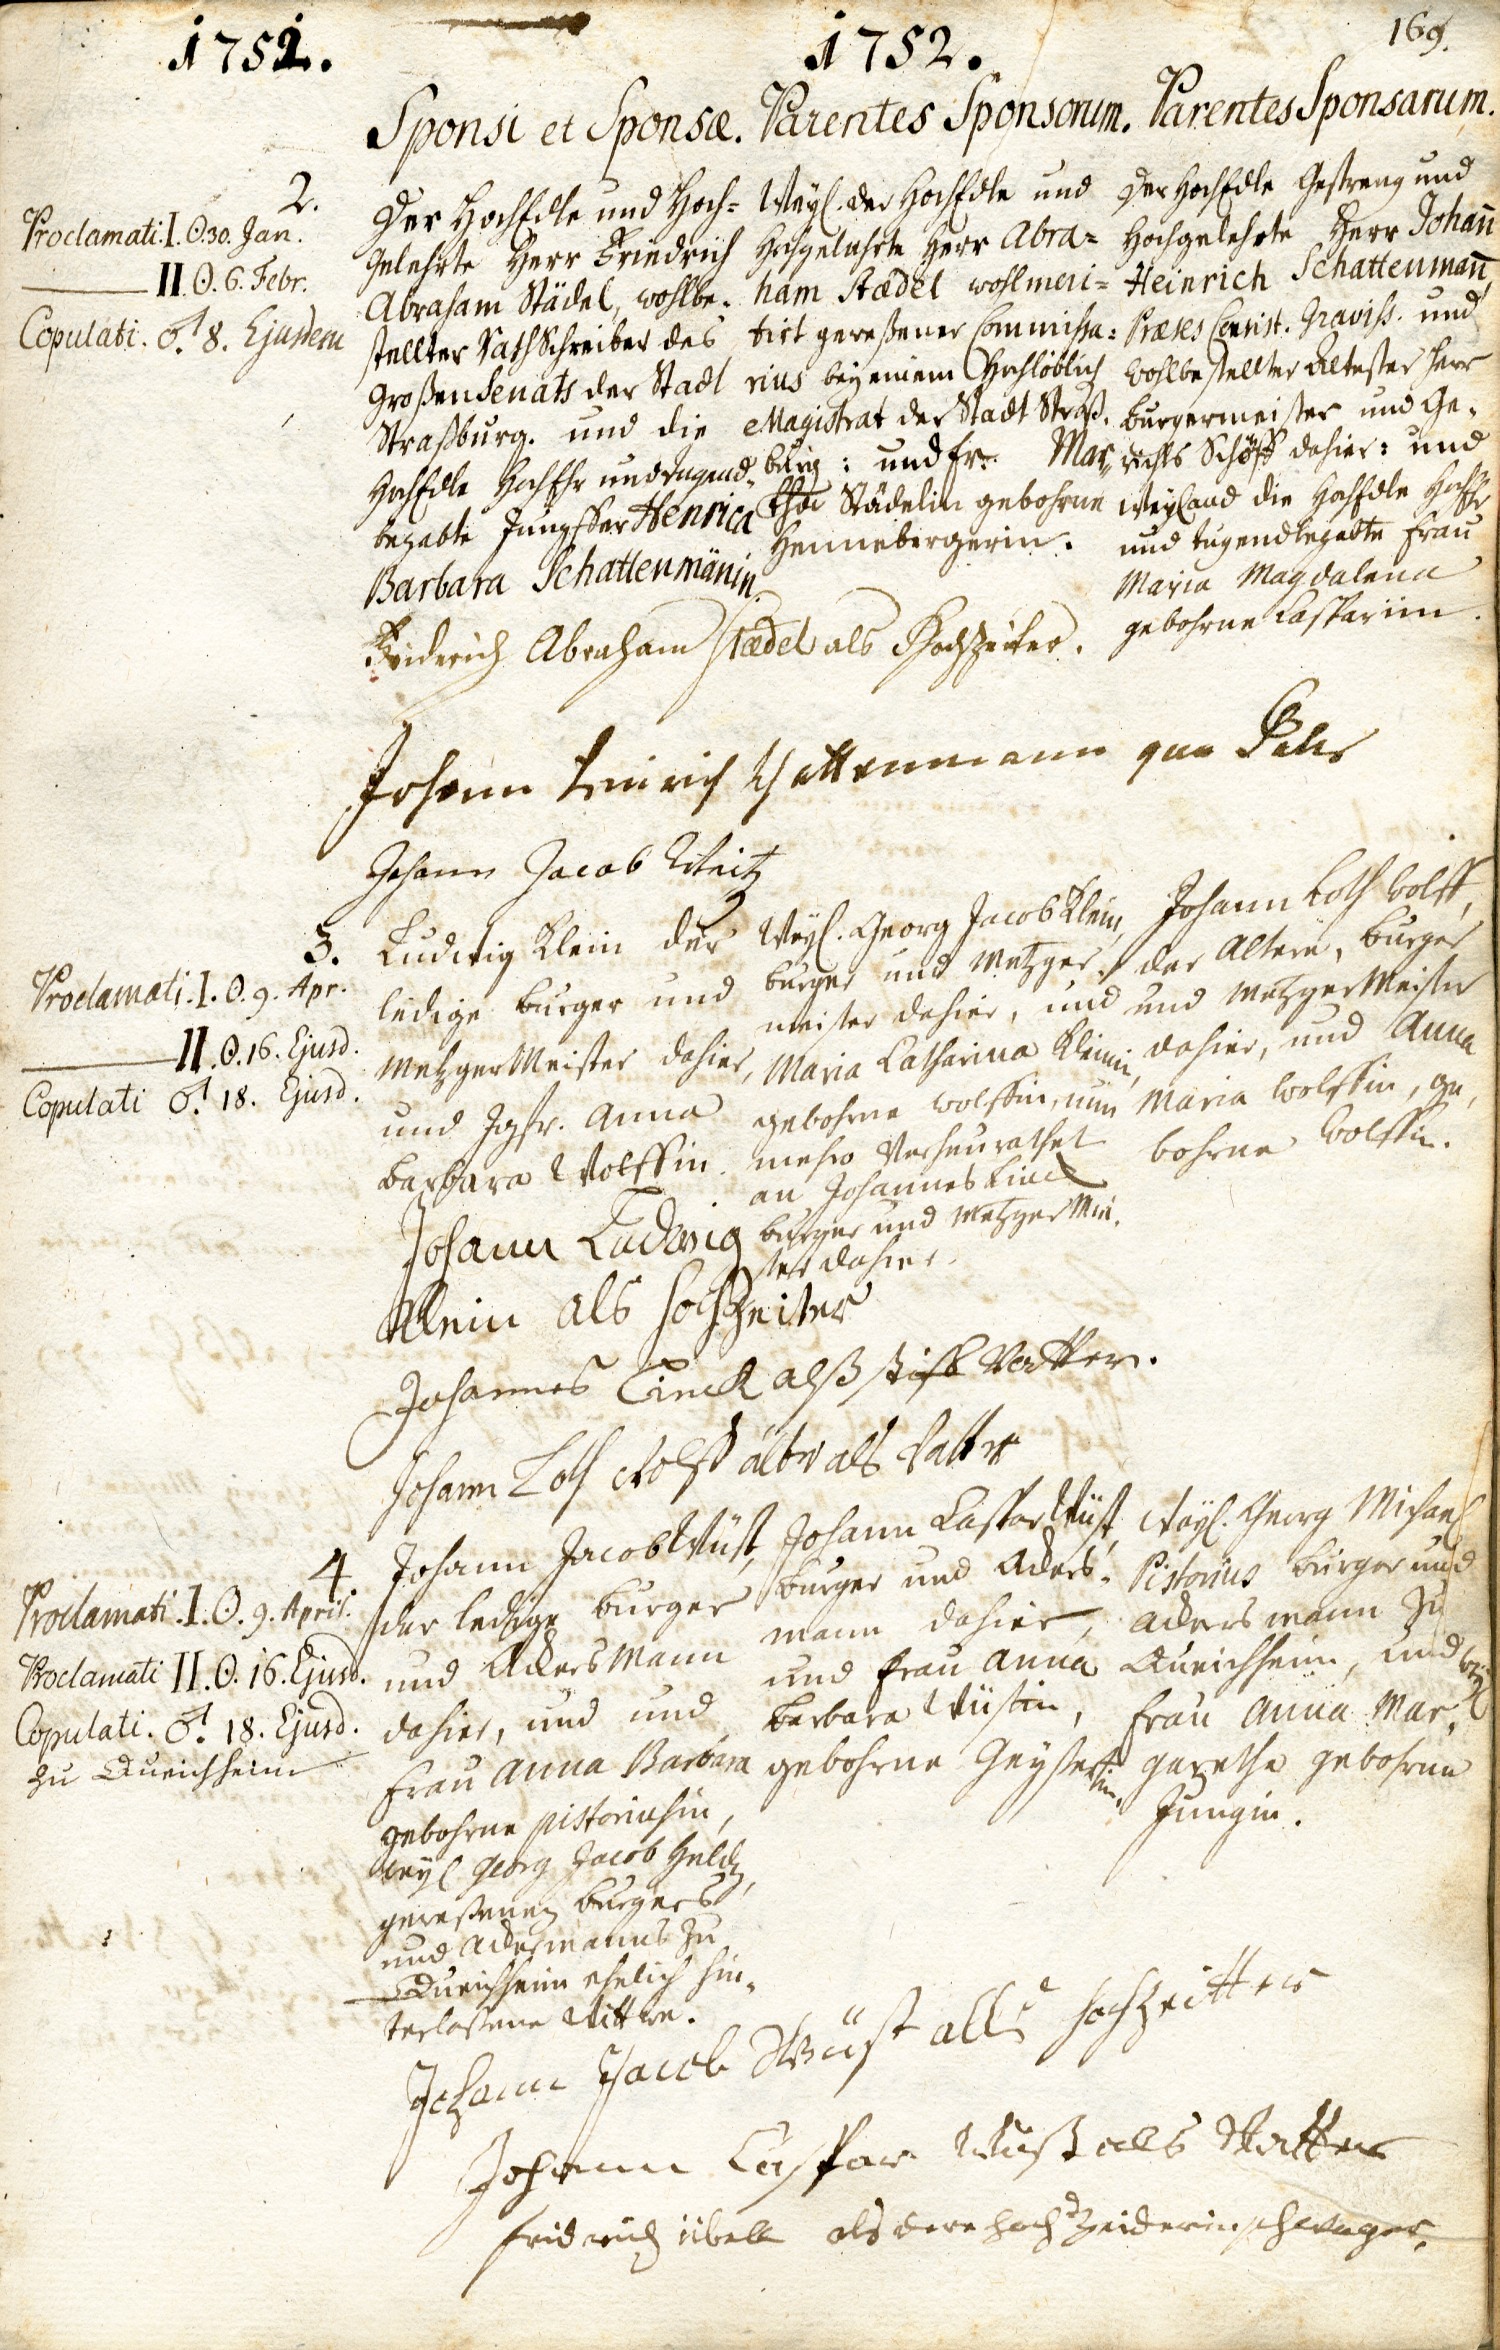 1752.
1752.
169.
Sponsi et Sponsæ. Parentes Sponsorum. Parentes Sponsarum.
2.
Proclamati. I. ☉ 30. Jan.
II ☉. 6. Febr.
Copulati. ♂. 8. Ejusdem
Der HochEdle und Hoch-
gelehrte Herr Friedrich
Abraham Städel, wohlbe-
stellter RathSchreiber des
Großen Senats der Stadt
Straßburg. und die
HochEdle HochEhr und tugend-
begabte Jungffer Henrica
Barbara Schattenmänin
Weyl. der HochEdle und
Hochgelahrte Herr Abra=
ham Stædel wohlmeri=
tirt geweßener Commissa=
rius bey einem Hochlöblich
Magistrat der Stadt Straß-
burg: und Fr. Mar-
tha Städelin gebohrne
Hennebergerin.
Der HochEdle Gestreng und
Hochgelehrte Herr Johañ
Heinrich Schattenmañ
Præses Consist. Graviss. und
wohlbestellter Ältester Herr
Burgermeister und Ge-
richts Schöff dahier: und
Weyland die HochEdle HochEhr
und tugendbegabte Frau
Maria Magdalena
gebohrne Caspariin.
Friderich Abraham Stædel als Hochzeiter.
Johann Heinrich Schattenmann qua Pater
Johann Jacob Weitz
3.
Proclamati. I. ☉. 9. Apr.
II. ☉. 16. Ejusd.
Copulati ♂. 18. Ejusd.
Ludwig Klein der
ledige Burger und
MetzgerMeister dahier,
und Jgfr. Anna
Barbara Wolffin.
Weyl. Georg Jacob Klein,
Burger und Metzger-
meister dahier, und
Maria Catharina Kleinin,
gebohrne Wolffin, nun
mehro verheurathet
an Johannes Linck
Burger und MetzgerMei-
ster dahier.
Johann Loth Wolff,
der Altere, Burger
und MetzgerMeister
dahier, und Anna
Maria Wolffin, ge-
bohrne Wolffin.
Johann Ludwig
Klein als HochZeiter
Johannes Linck alß stiff Vatter.
Johann Loth Wolff älter als Vatter
4.
Proclamati. I. ☉. 9. April.
Proclamati II. ☉. 16. Ejusd.
Copulati. ♂. 18. Ejusd.
zu Queichheim
Johann Jacob Wüst,
der ledige Burger
und AckersMann
dahier, und und
Frau Anna Barbara
gebohrne Pistoriusin,
weyl Georg Jacob
geweßenen Burgers
und Ackermanns zu
Queichheim ehelich hin-
terlaßene Wittwe.
Johann Caspar Wüst,
Burger und Ackers-
mann dahier,
und Frau Anna
Barbara Wüstin,
gebohrne
Weyl. Georg Michael
Pistorius Burger und
Ackersmann zu
Queichheim, und weyl
Frau Anna Mar-
garetha gebohrne
Jungin.
Johann Jacob Wüst alls hochzeitter
Johann Caspar Wüst als Vatter
fridrich übell als dere hochzeiderin schwager.